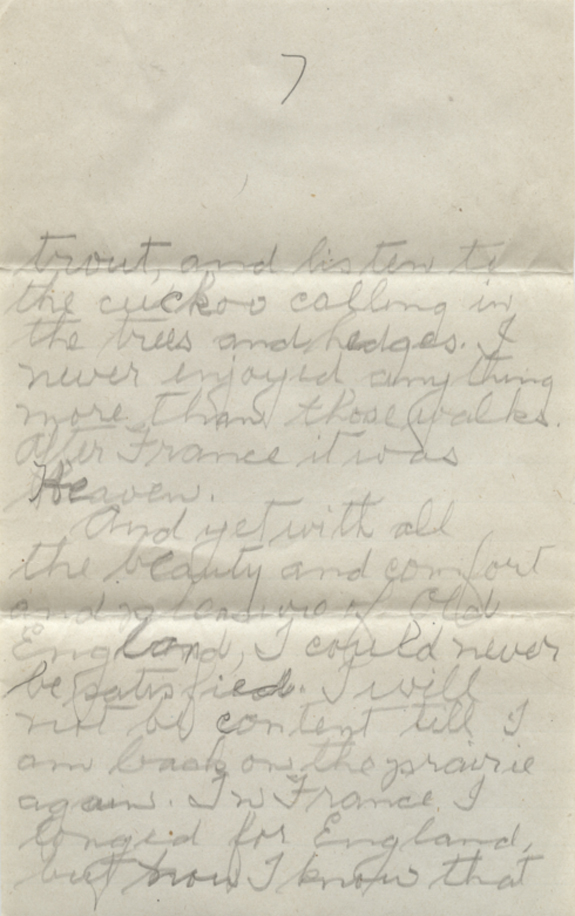 7
trout, and listen to
the cuckoo calling in
the trees and hedges. I
never enjoyed anything
more than those walks.
After France it was
Heaven.
And yet with all
the beauty and comfort
and pleasure of Old
England, I could never
be satisfied. I will
not be content till I
am back on the prairie
again. In France I
longed for England,
but now I know that